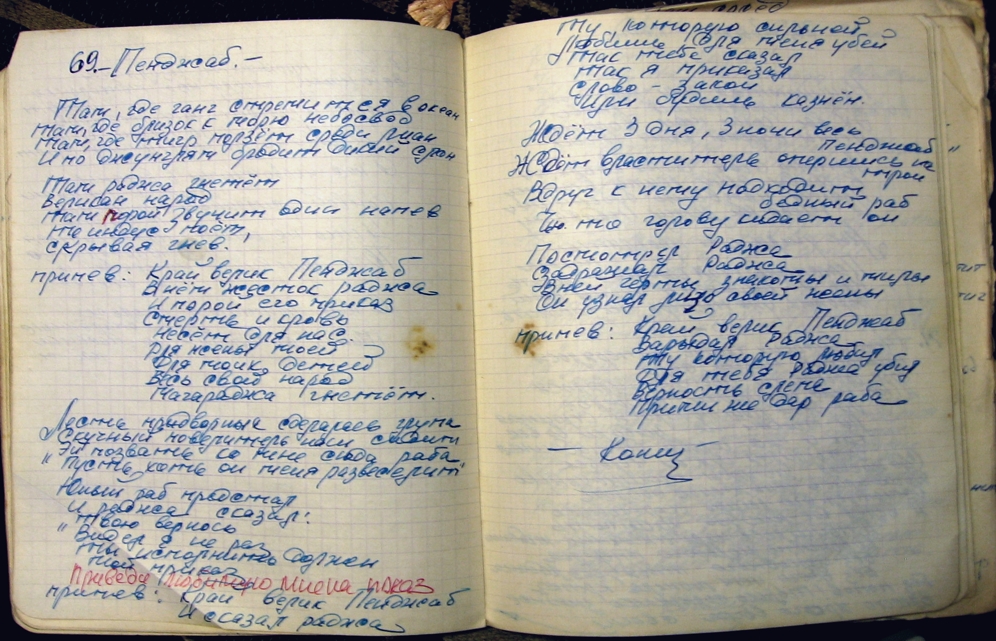 69.- Пенджаб.-
Там, где ганг стремится в океан
Там, где близок к морю небосвод
Там, где тигр ползёт среди лиан
И по джунглям бродит дикий слон
Там раджа гнетёт
Великий народ
Там порой звучит один напев
То индус поёт,
скрывая гнев.
припев: Край велик Пенджаб
В нём жесток раджа
И порой его приказ
Смерть и кровь
Несёт для нас.
Для жены моей
Для моих детей
Весь свой народ
Магараджа гнетёт.
Лесть придворных сделалась глупа
Скучный повелитель
"Эй позвать ко мне сюда раба
"Пусть хоть он меня развеселит"
Юный раб предстал
И раджа сказал:
"Твою верность
Видел я не раз
Ты исполнить должен
мой приказ
Приведи
припев: Край велик Пенджаб
И сказал раджа
Ту которую сильней
Любишь для меня убей
Так тебе сказал
Так я приказал
Слово - закон
Или будешь казнён.
Ждёт 3 дня, 3 ночи весь
Пенджаб
Ждёт властитель опершись на
трон
Вдруг к нему подходит
бедный раб
Чью то голову кидает он
Посмотрел Раджа
Задрожал Раджа
В ней черты знакомы и милы
Он узнал лицо своей жены
припев: Край велик Пенджаб
Зарыдал Раджа
Ту которую любил
Для тебя Раджа убил
Верность слепа
Прими же дар раба
- Конец -